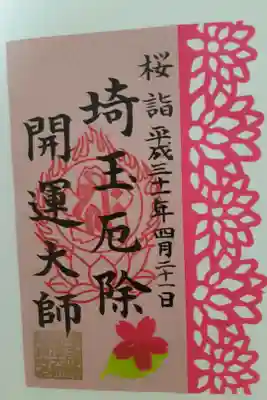 桜詣 平成三十一年四月二十一日
埼玉厄除
開運大師